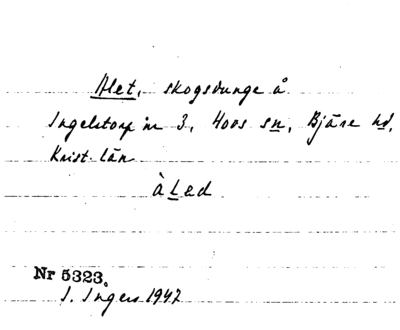 Alet, skogsdunge å
Ingelstorp nr 3, Hovs sn, Bjäre hd,
Krist. län
àLed
Nr 5323.
I. Ingers 1947